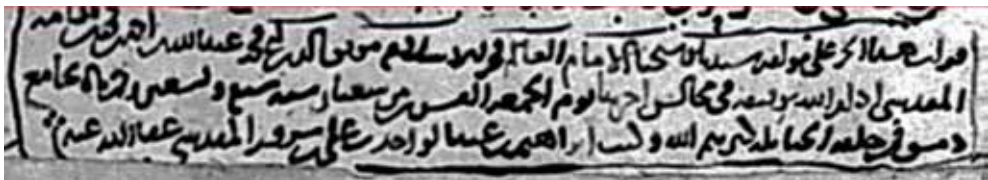 قرات هذا الجزء على مولفه سيدنا وشيخنا الامام العالم الاسلام موفق الدين ابي محمد عبد الله بن احمد بن محمد بن قدامه
المقدسي ادام الله توفيقه في مجالس اخرها يوم الجمعه من شعبان سنه سبع وتسعين بجامع
دمشق في حلقه الحنابله كثرهم الله وكتب ابراهيم بن عبد الواحد بن علي بن سرور المقدسي عفا الله عنه